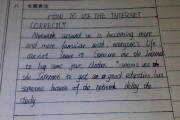 HOW TO USE THE INTERNET
CORRECTLY
Network around us is becoming more
and more familiar with everyone's life
not leave it. Someone use the Internet
to buy some clothes. someone use
the Internet to get an good education but
someone because of the network delay the
study.